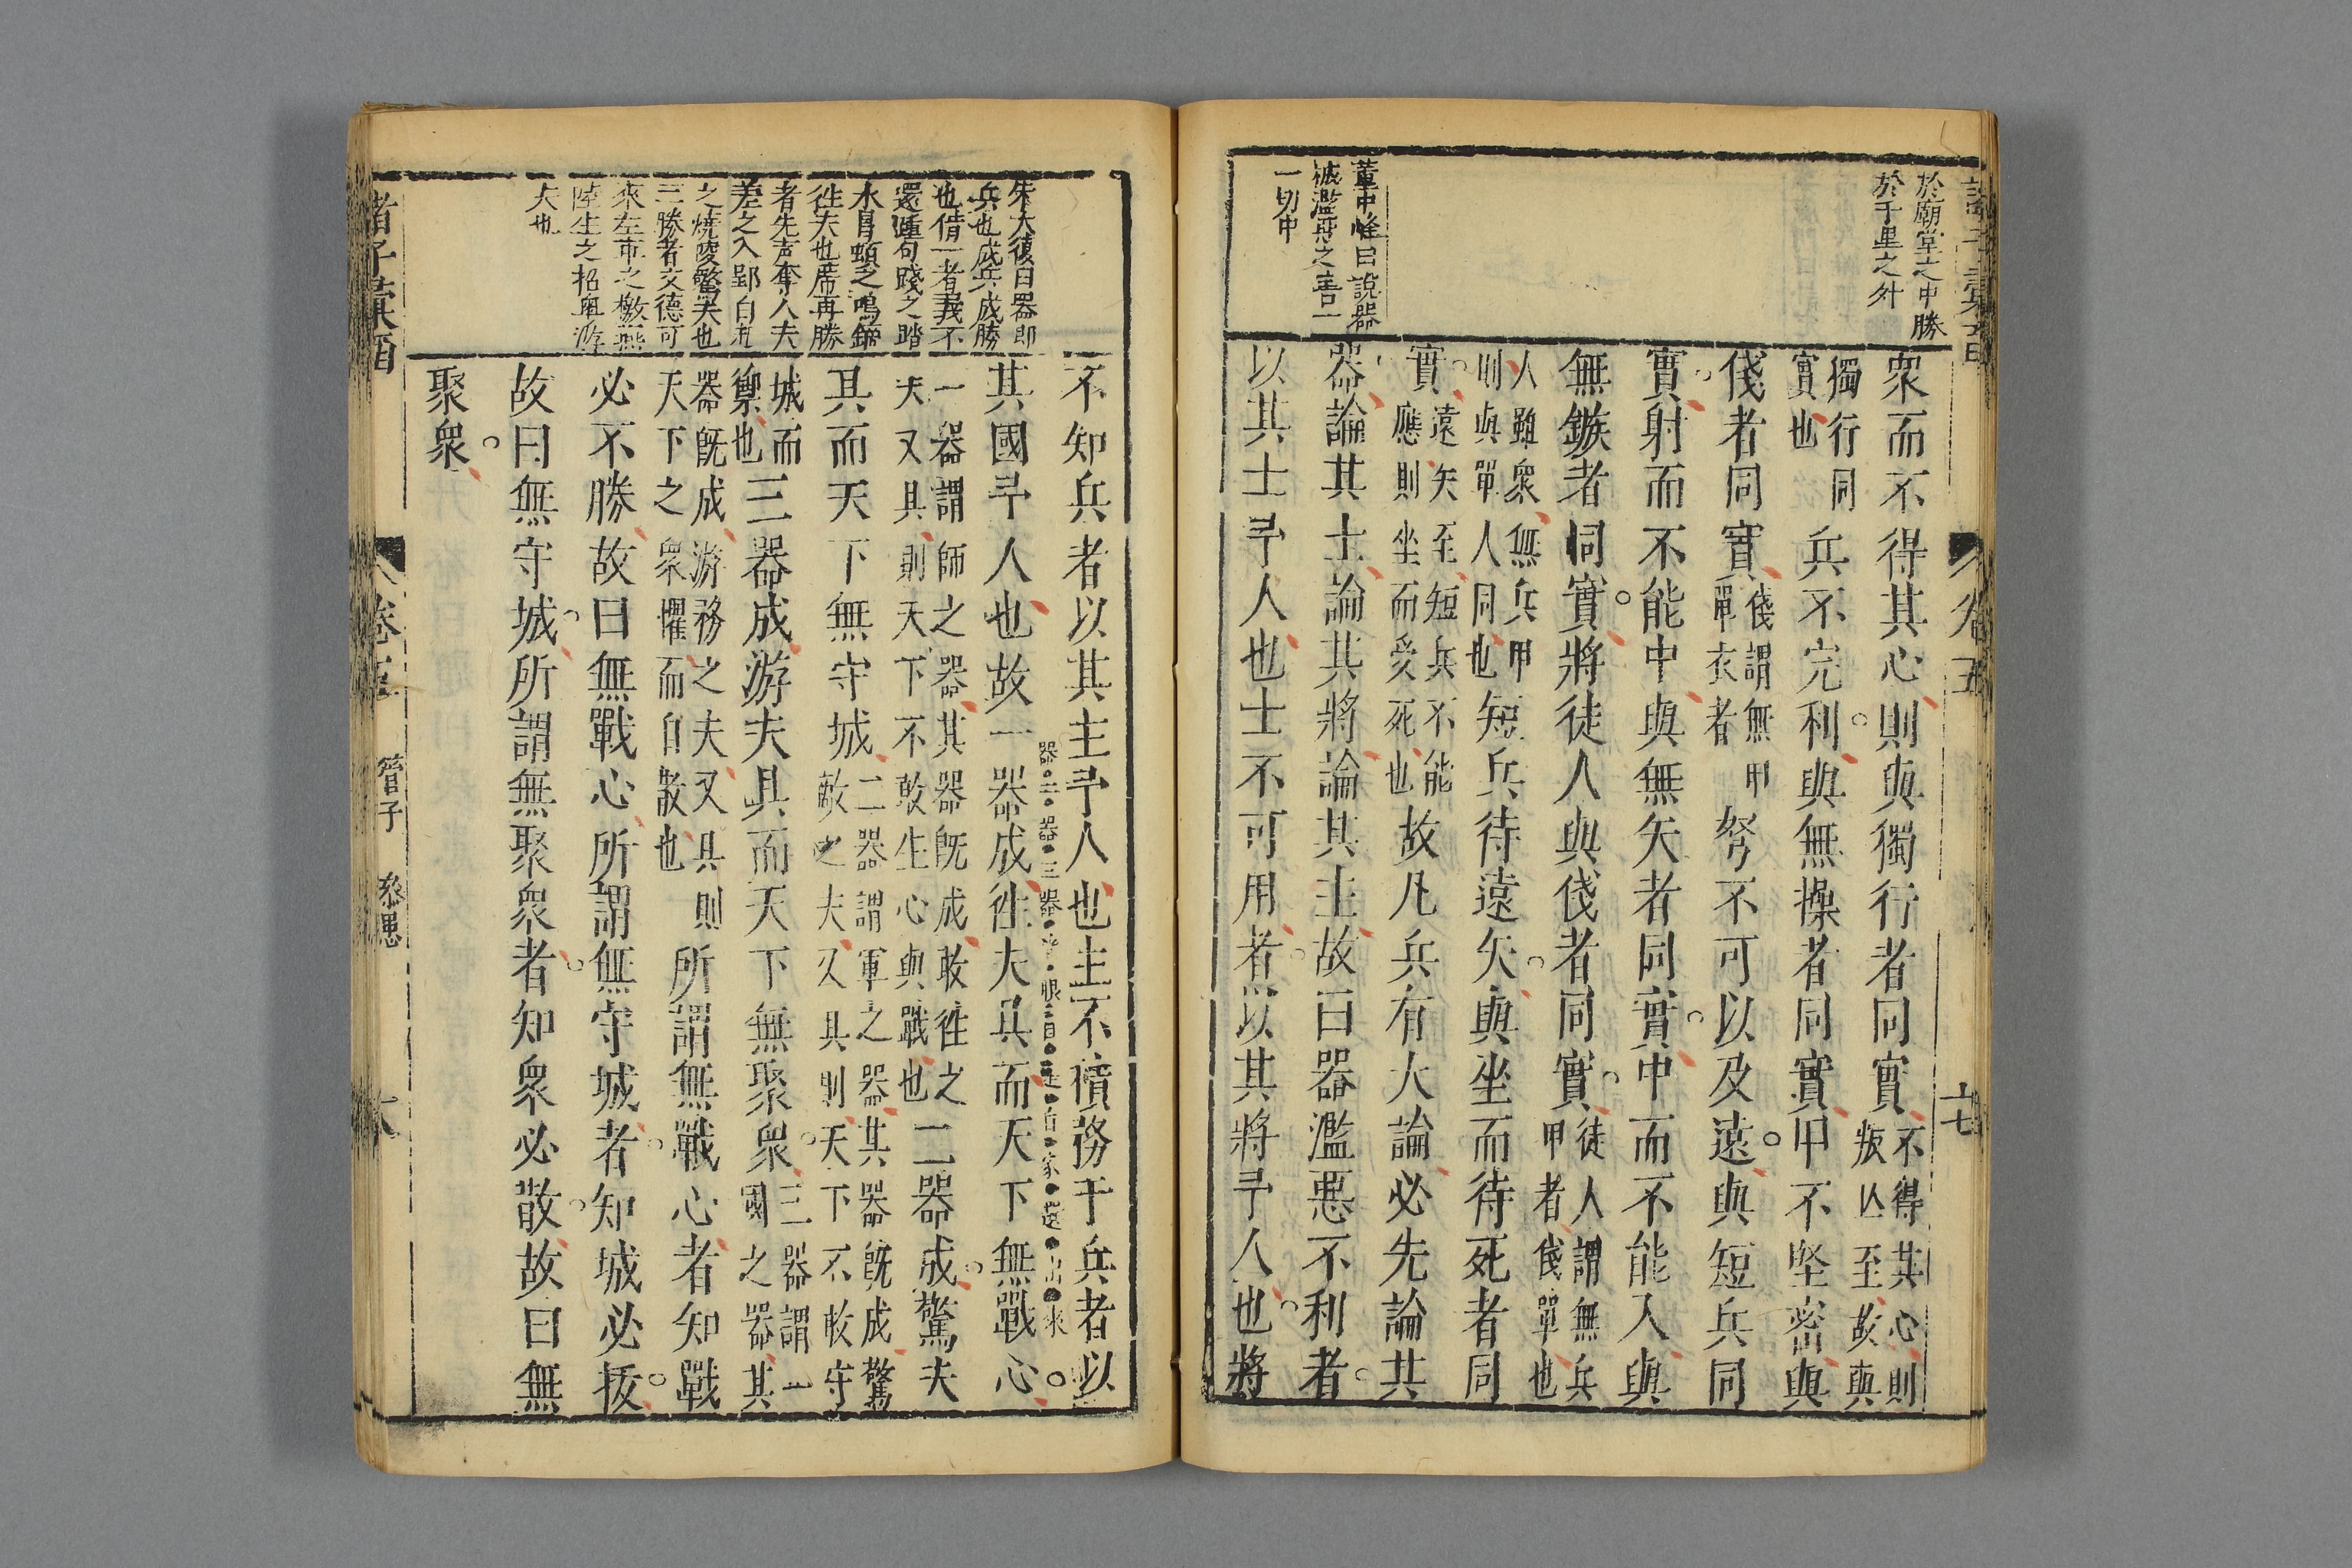 於廟堂之中勝
於千里之外
董中峰曰說器
械濫惡之害一
一切中
衆而不得其心則與獨行者同實不得其心則
叛亾至故與
獨行同
實也兵不完利與無操者同實甲不堅密與
俴者同實俴謂無甲
單衣者弩不可以及遠與短兵同
實射而不能中與無矢者同實中而不能入與
無鏃者同實將徒人與俴者同實徒人謂無兵
甲者俴單也
人雖衆無兵甲
則與單人同也短兵待遠矢與坐而待死者同
實遠矢至短兵不能
應則坐而受死也故凡兵有大論必先論其
器論其士論其將論其主故曰器濫惡不利者
以其士予人也士不可用者以其將予人也將
諸子彙
卷五
十七
朱大復曰器即
兵也成兵成勝
也倩一者義不
還踵句踐之踏
水冒蝢之鳴鏑
徃夫也席再勝
者先声奪人夫
差之入郢白
之燒陵驚夫也
三勝者文德可
來左車之檄燕
陸生之招粤游
夫也
不知兵者以其主予人也主不積務于兵者以
器二器三器眼目自家還出來
其國予人也故一器成徃夫具而天下無戰心
一器謂師之器其器旣成敢徃之
夫又具則天下不敢生心與戰也二器成驚夫
具而天下無守城二器謂軍之器其器旣成驚
敵之夫又具則天下不敢守
城而
禦也三器成游夫具而天下無聚衆三器謂一
國之器其
器旣成游務之夫又具則
天下之衆懼而自散也所謂無戰心者知戰
必不勝故曰無戰心所謂無守城者知城必拔
故曰無守城所謂無聚衆者知衆必散故曰無
聚衆
諸子彙
卷五
管子
參患